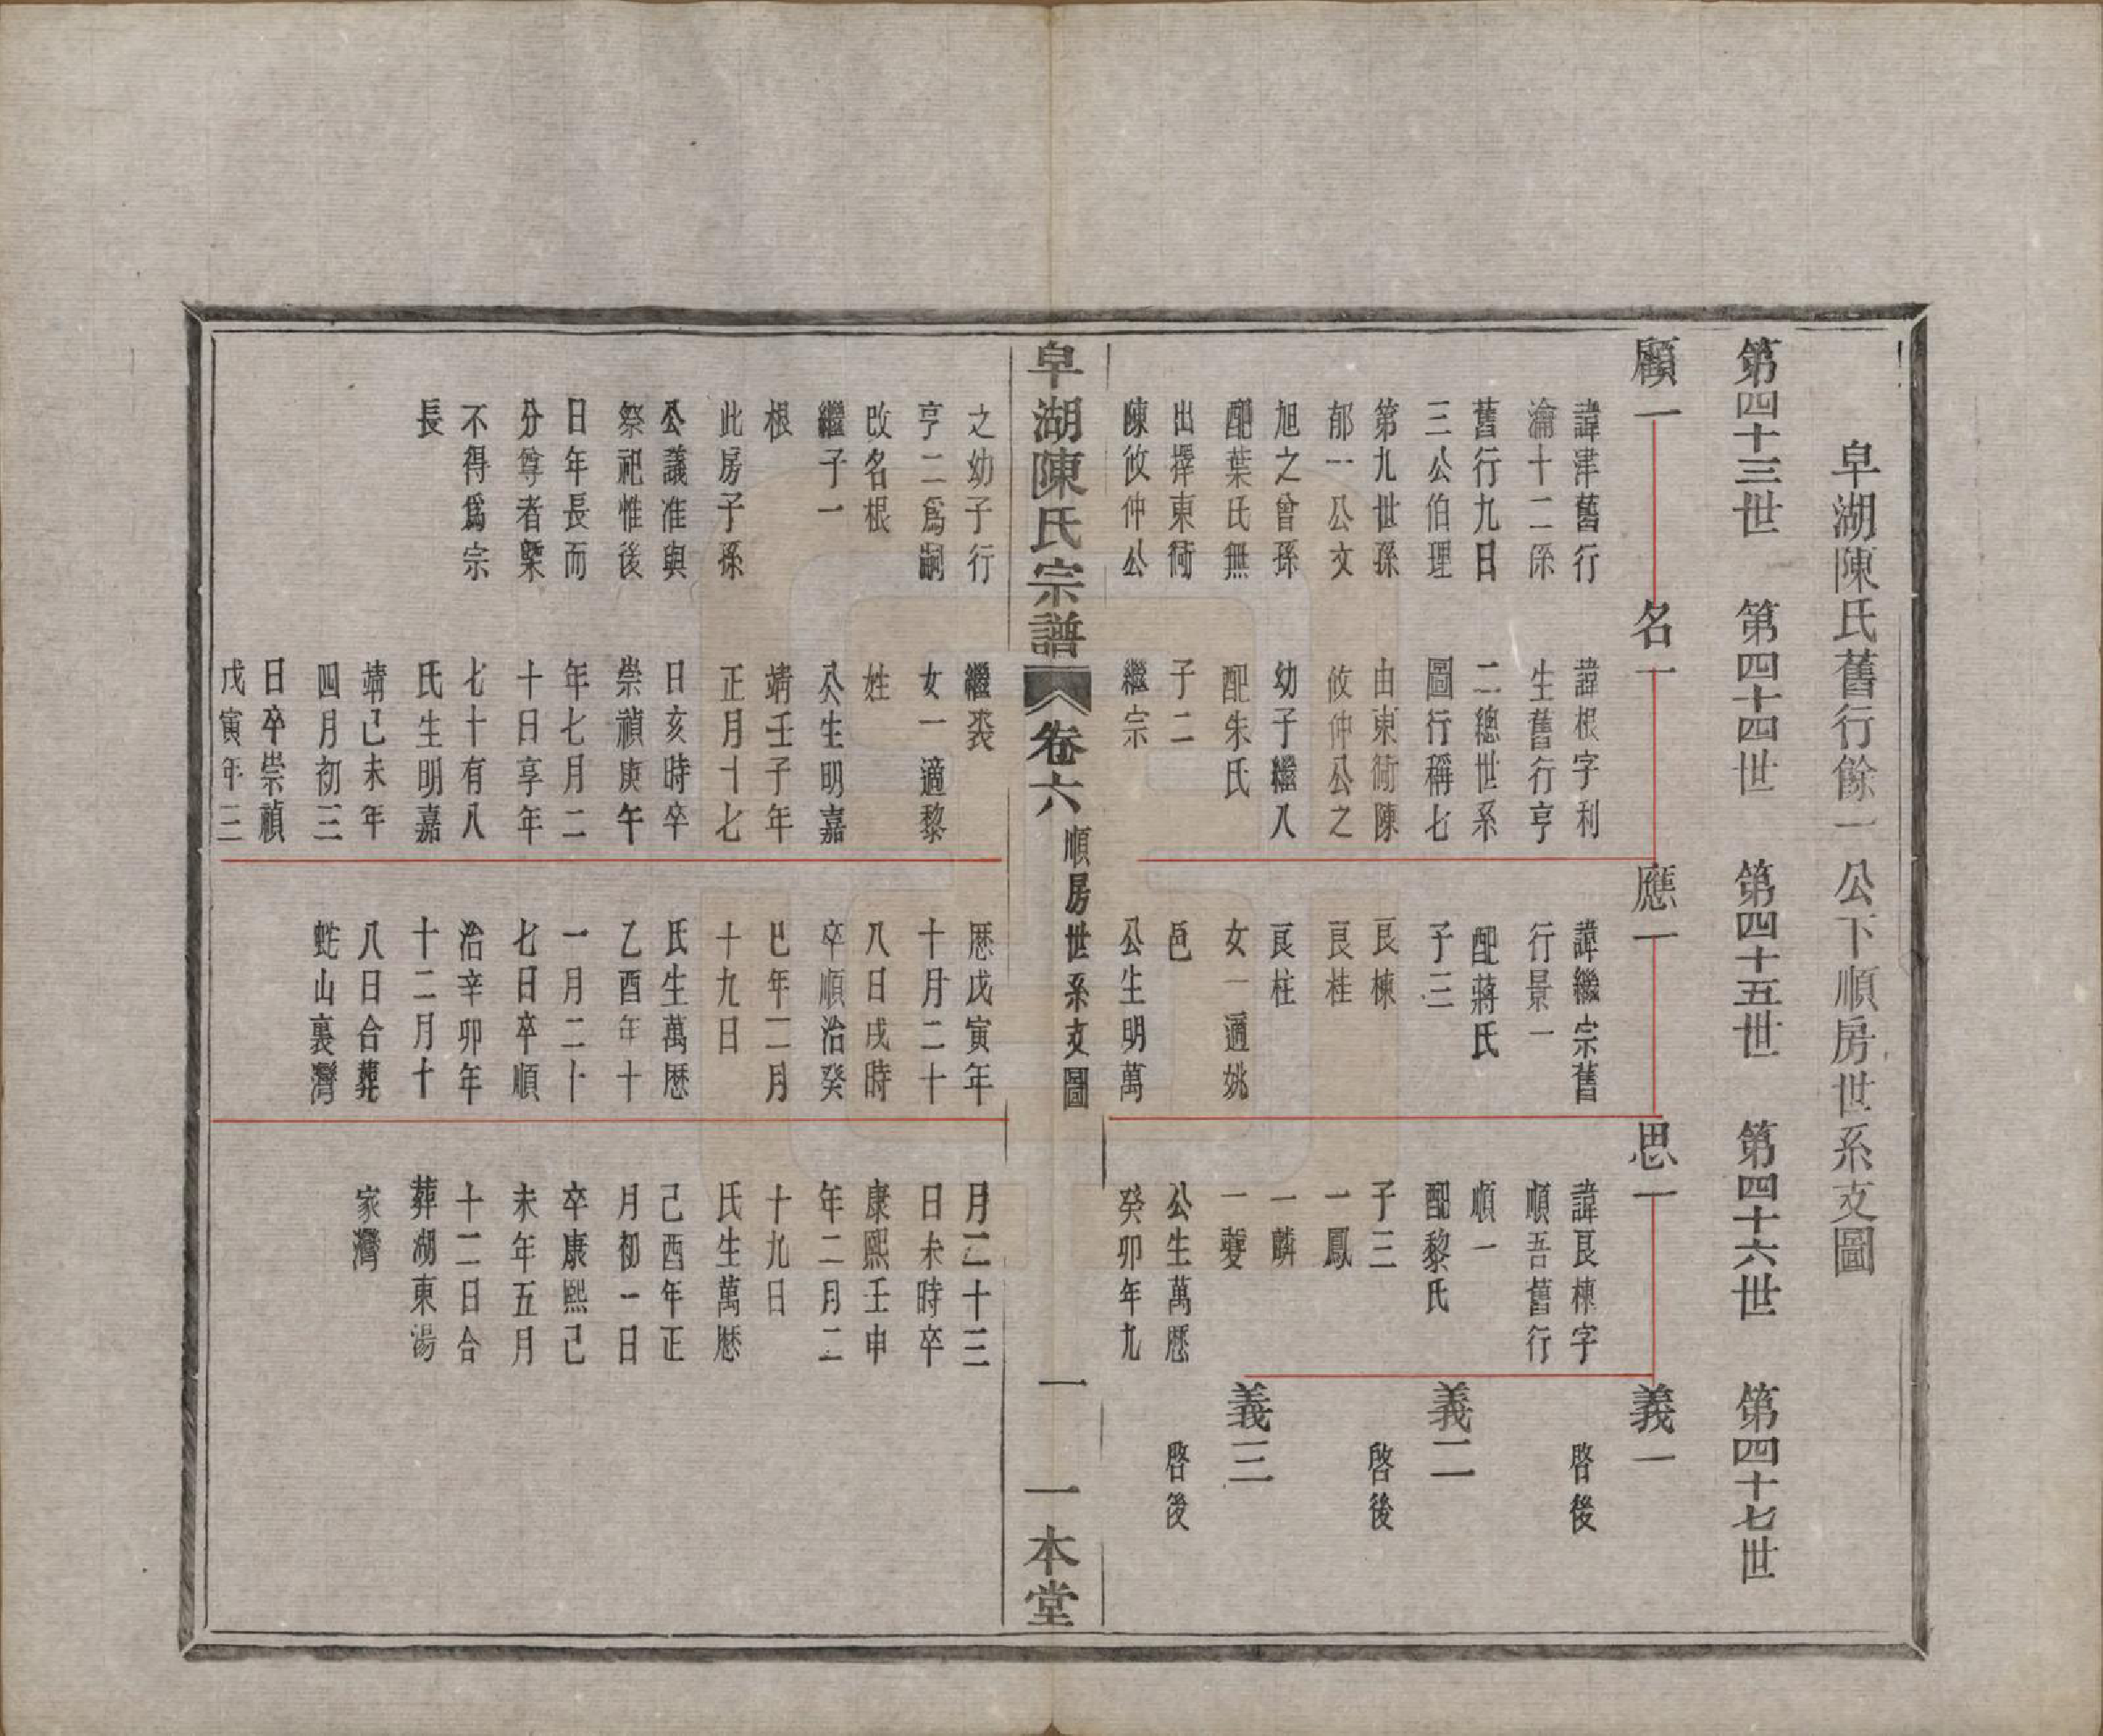 皁湖陳氏舊行餘一公下順房世系支圖
第四十三世　第四十四世　第四十五世　第四十六世　第四十七世
顧一
諱津舊行
瀹十二係
舊行九日
三公伯理
第九世孫
郁一公文
旭之曾孫
配葉氏無
出擇東衕
陳攸仲公
之幼子行
亨二爲嗣
改名根
繼子一
根
此房子孫
公議准與
祭祀惟後
日年長而
分尊者槩
不得爲宗
長
名一
諱根字利
生舊行亨
二總世系
圖行稱七
由東衕陳
攸仲公之
幼子繼入
配朱氏
子二
繼宗
繼裘
女一適黎
姓
公生明嘉
靖壬子年
正月十七
日亥時卒
崇禎庚午
年七月二
十日享年
七十有八
氏生明嘉
靖己未年
四月初三
日卒崇禎
戊寅年三
應一
諱繼宗舊
行景一
配蔣氏
子三
艮棟
艮桂
艮柱
女一適姚
邑
公生明萬
厯戊寅年
十月二十
八日戌時
卒順治癸
巳年二月
十九日
氏生萬厯
乙酉年十
一月二十
七日卒順
治辛卯年
十二月十
八日合葬
蛇山裏灣
思一
諱艮棟字
順吾舊行
順一
配黎氏
子三
一鳳
一麟
一夔
公生萬厯
癸卯年九
月二十三
日未時卒
康熙壬申
年二月二
十九日
氏生萬厯
己酉年正
月初一日
卒康熙己
未年五月
十二日合
葬湖東湯
家灣
義一
啓後
義二
啓後
義三
啓後
皁湖陳氏宗譜　卷六　順房世系支圖　一　一本堂